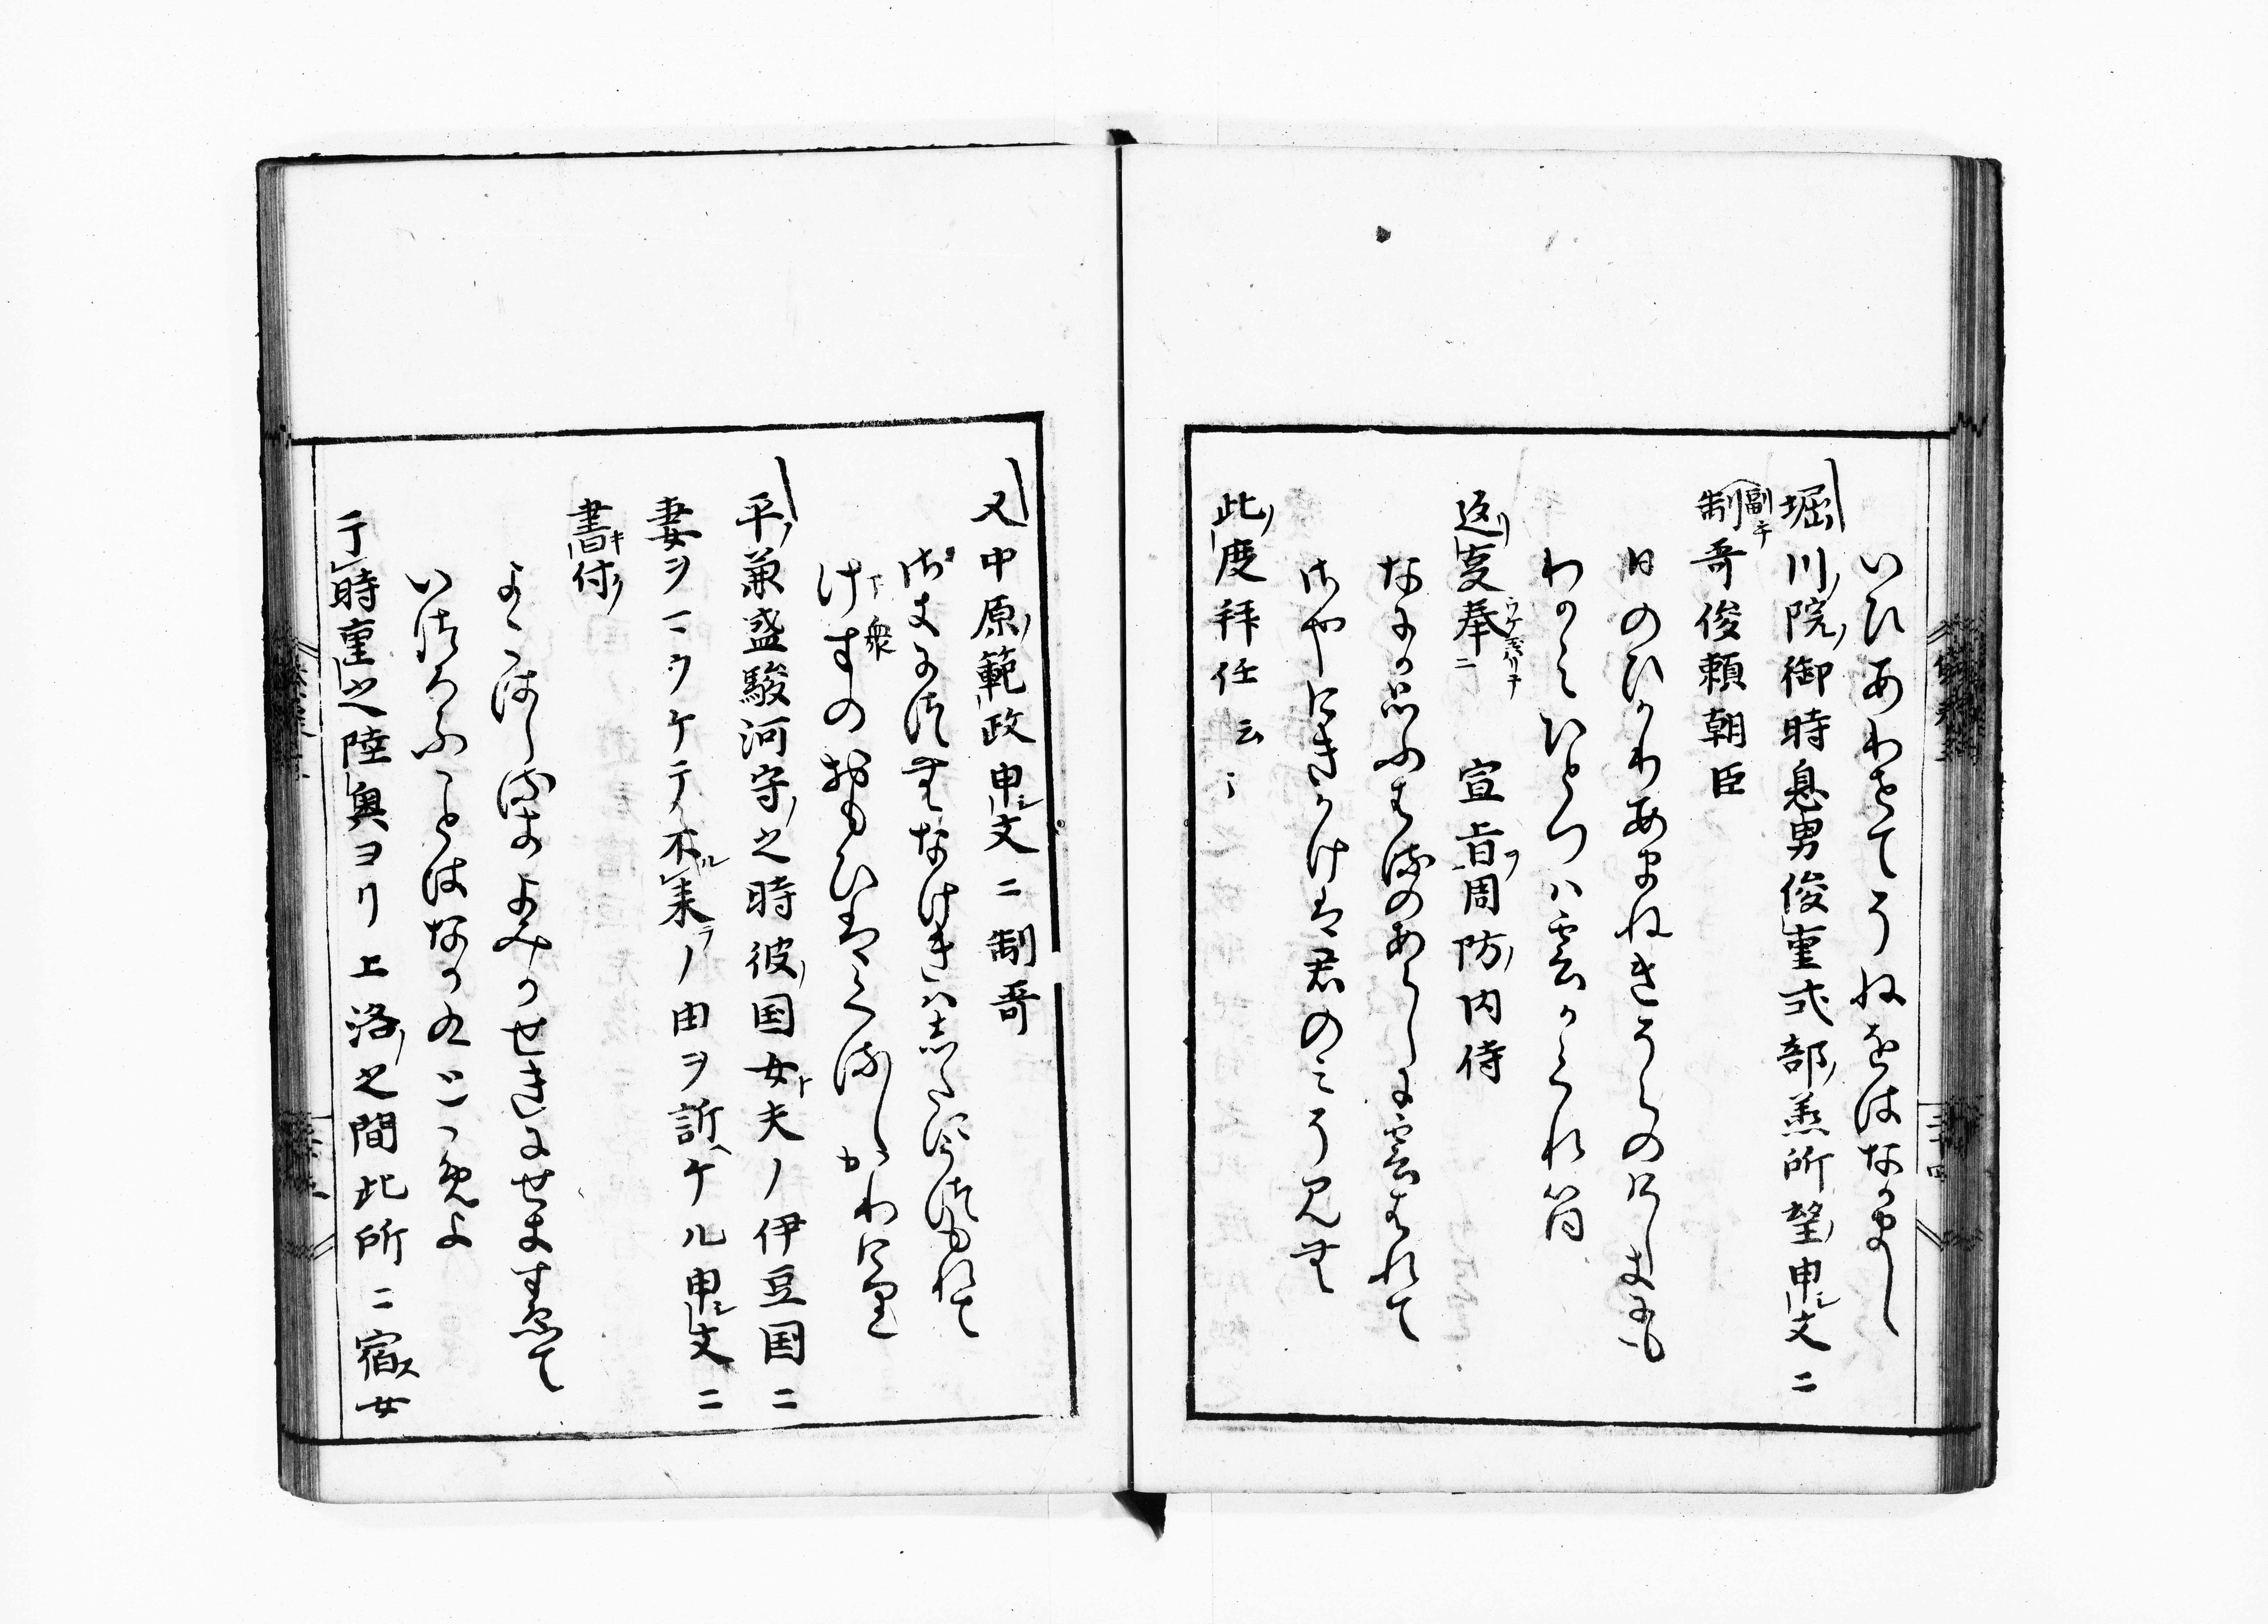 いひあわせてそねをはなかまし
堀川院御時息男俊重式部丞所望申文ニ
副テ
制哥俊頼朝臣
日のひかりあまねきそらのけしきにも
わかみひとつハ雲かくれつゝ
返事奉ニ 宣旨周防内侍
ウケ玉ハリテ
なにか思ふはるのあらしに雲はれて
さやけきかけは君のみそ見む
此度拝任云々
又中原範政申文ニ制哥
なけきハ
けすのおもひはくるしかりけり
下衆
平兼盛駿河守之時彼国女夫ノ伊豆国ニ
妻ヲマウケテ不来ノ由ヲ訴ケル申文ニ
書付
よこはしるきよみかせきにせきすゑて
いつてふことはなかくとゝめよ
于時重之陸奥ヨリ上洛之間此所ニ宿女